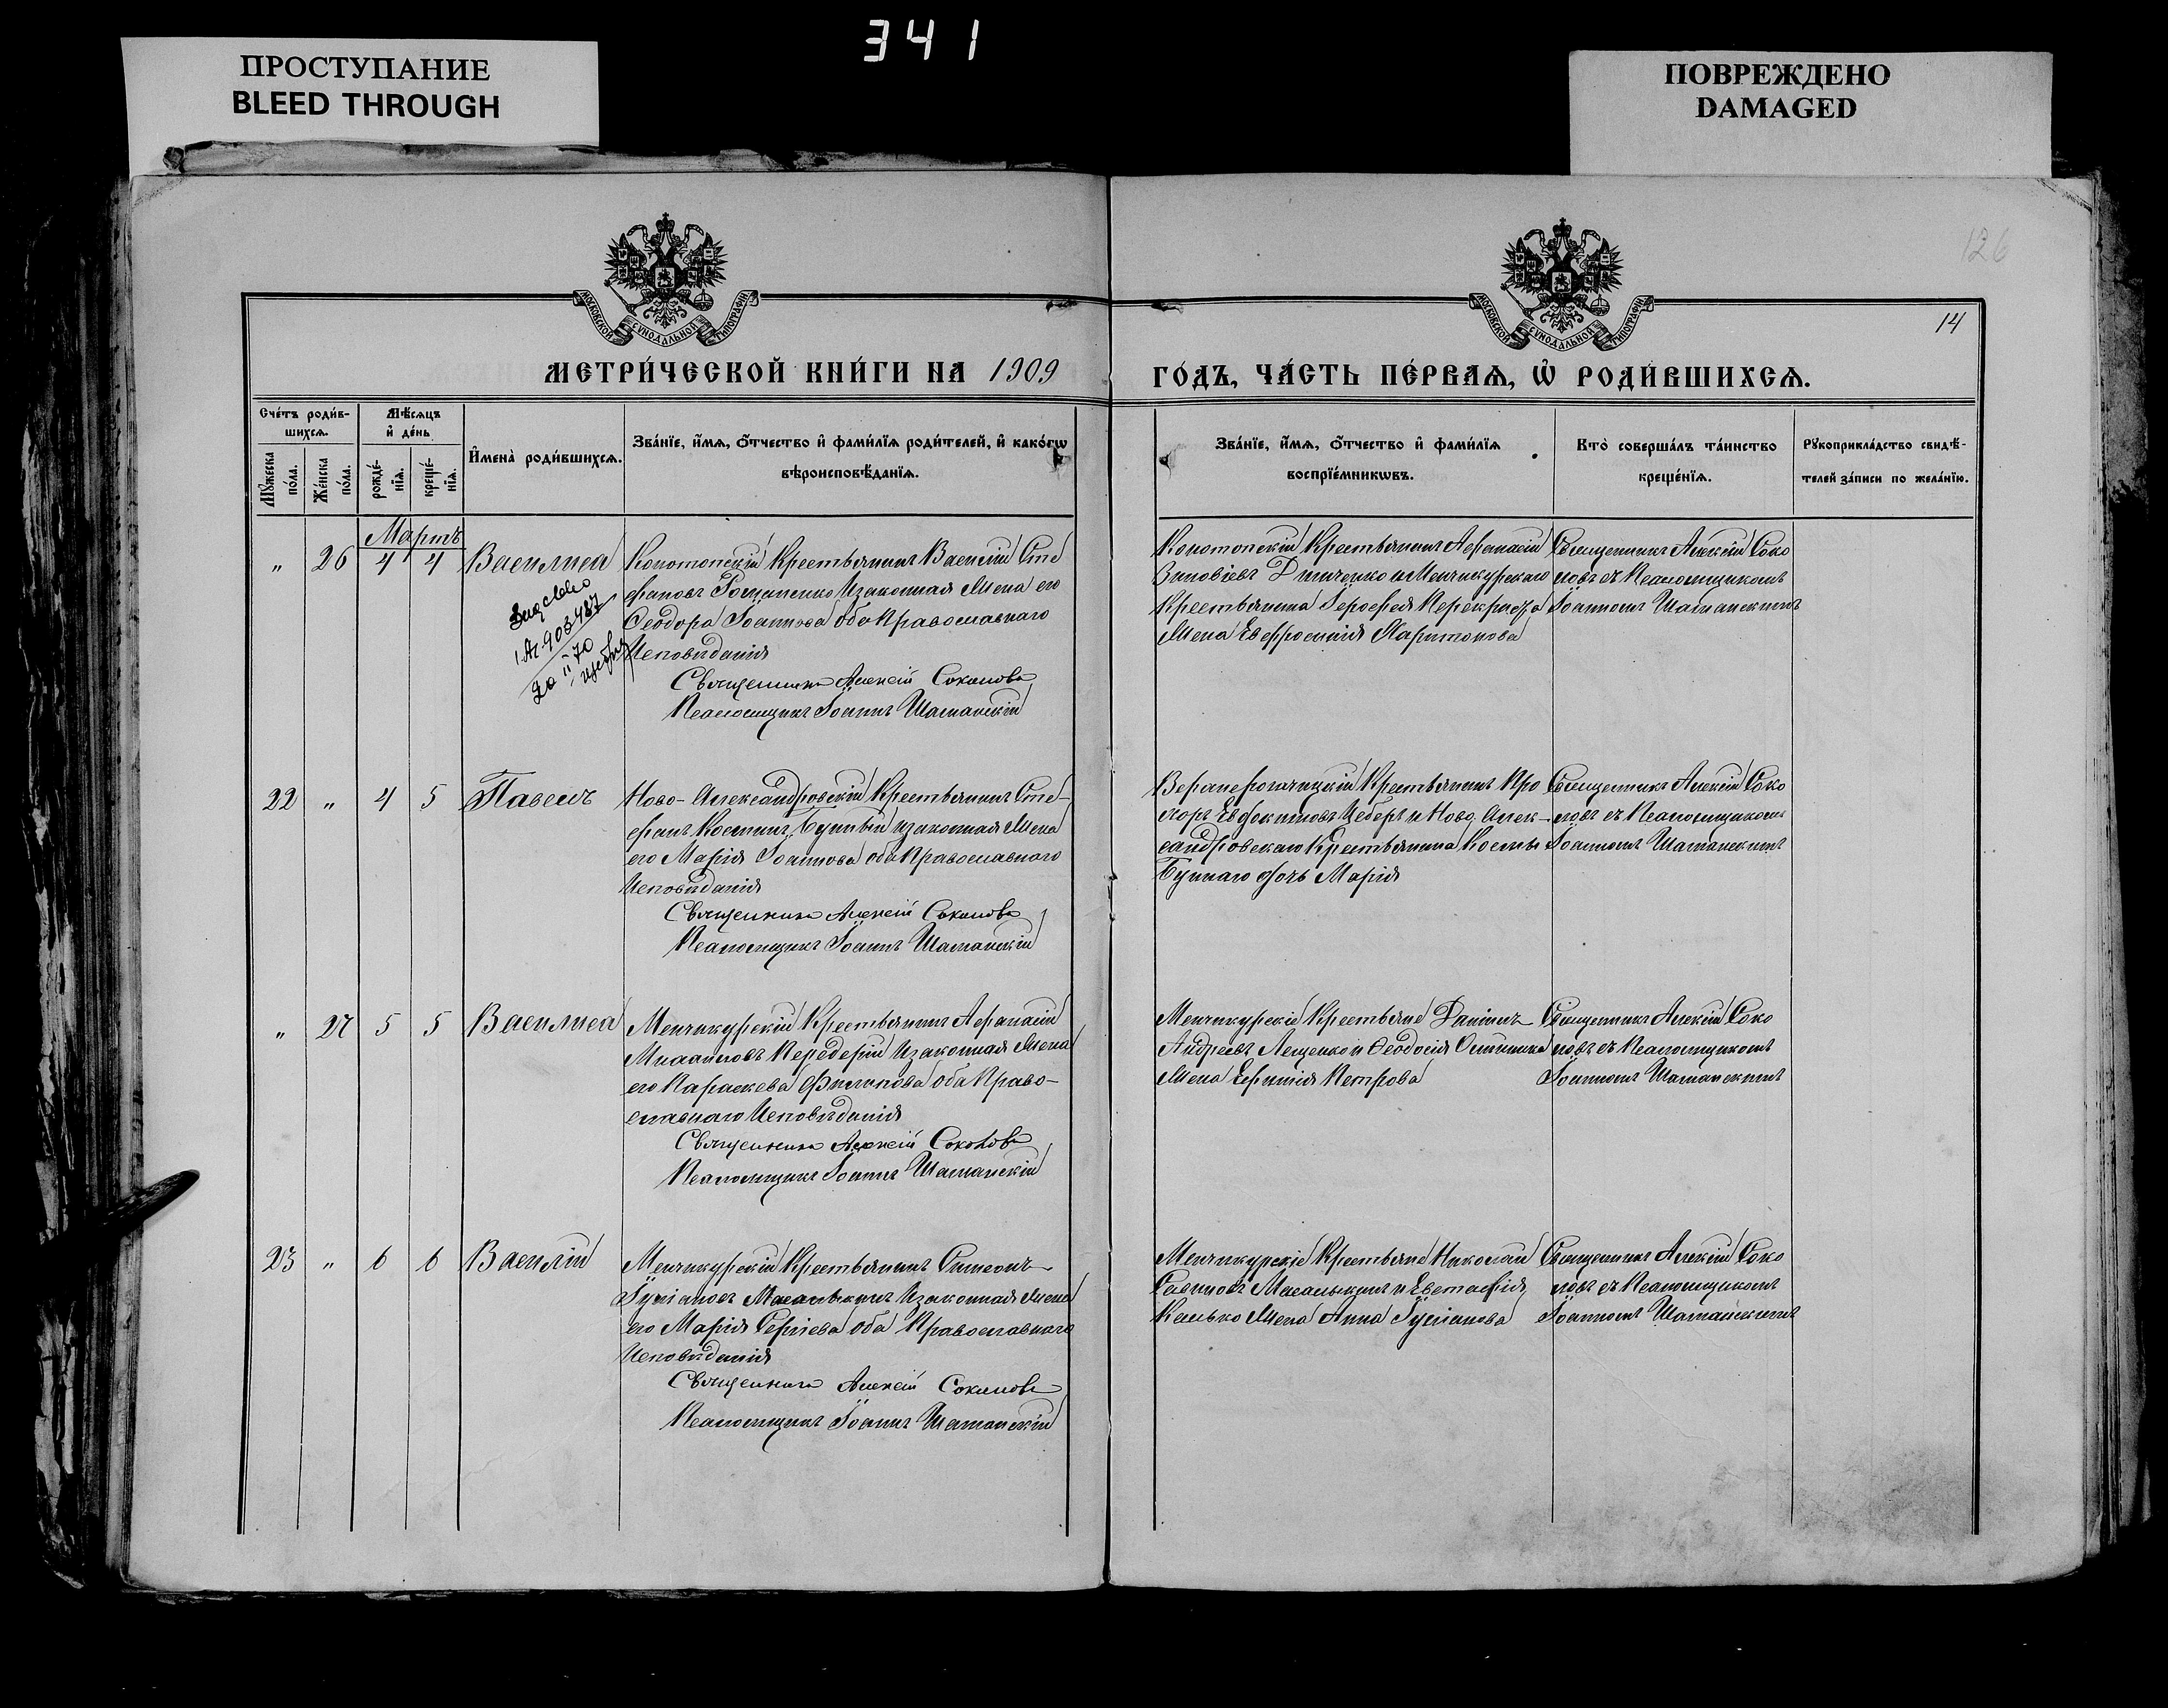 341
ПРОСТУПАНИЕ
BLEED THROUGH
ПОВРЕЖДЕНО
DAMAGED
126
14
МОСКОВСКОЙ СѴНОДАЛЬНОЙ ТИПОГРАФІИ
МОСКОВСКОЙ СѴНОДАЛЬНОЙ ТИПОГРАФІИ
МЕТРИ́ЧЕСКОЙ КНИ́ГИ НА 1909
ГО́ДЪ, ЧА́СТЬ ПЕ́РВАѦ, Ѡ҆ РОДИ́ВШИХСѦ.
Сче́тъ роди́в-
шихсѧ.
Мꙋ́жеска по́ла.
Же́нска по́ла.
Мѣ́сѧцъ
и҆ де́нь
рожде́-
нїѧ.
креще́-
нїѧ.
И҆мена̀ роди́вшихсѧ.
Зва́нїе, и҆́мѧ, ѻ҆́тчество и҆ фами́лїѧ роди́телей, и҆ како́гѡ
вѣроисповѣ́данїѧ.
Зва́нїе, и҆́мѧ, ѻ҆́тчество и҆ фами́лїѧ
воспрїе́мникѡвъ.
Кто̀ соверша́лъ та́инство
креще́нїѧ.
Рꙋкоприкла́дство свидѣ́-
телей за́писи по жела́нїю.
Мартъ
" 26 4 4 Василиса
Конотопскій Крестьянинъ Василій Сте
фановъ Гощаненко И законная Жена его
Ѳеодора Іоаннова оба Православнаго
Исповѣданія
Священникъ Алексій Соколовъ
Псаломщикъ Іоаннъ Шаманскій
903487
70
Конотопскій Крестьянинъ Афанасій
Зиновіевъ Дитченко и Менчикурскаго
Крестьянина Герофея Перекреста
Жена Евфросинія Харитонова
Священникъ Алексій Соко
ловъ съ Псаломщикомъ
Іоанномъ Шаманскимъ
22 " 4 5 Павелъ
Ново-Александровскій Крестьянинъ Сте-
фанъ Косминъ Бунный и законная Жена
его Марія Іоаннова оба Православнаго
Исповѣданія
Священникъ Алексій Соколовъ
Псаломщикъ Іоаннъ Шаманскій
Верхнерогачицкій Крестьянинъ Про
хоръ Евдокимовъ Цеберъ и Ново Алек-
сандровскаго Крестьянина Космы
Буннаго дочь Марія
Священникъ Алексій Соко
ловъ съ Псаломщикомъ
Іоанномъ Шаманскимъ
" 27 5 5 Василиса
Менчикурскій Крестьянинъ Афанасій
Михаиловъ Передерій И законная Жена
его Параскева Филипова оба Право-
славнаго Исповѣданія
Священникъ Алексій Соколовъ
Псаломщикъ Іоаннъ Шаманскій
Менчикурскіе Крестьяне Даніилъ
Андреевъ Лещенко и Ѳеодосія
Жена Ефимія Петрова
Священникъ Алексій Соко
ловъ съ Псаломщикомъ
Іоанномъ Шаманскимъ
23 " 6 6 Василій
Менчикурскій Крестьянинъ Симеонъ
Іуліановъ Масалыкинъ И законная Жена
его Марія Сергіева оба Православнаго
Исповѣданія
Священникъ Алексій Соколовъ
Псаломщикъ Іоаннъ Шаманскій
Менчикурскіе Крестьяне Николай
Саввиновъ Масалыкинъ и Евстафія
Жена Анна Іуліанова
Священникъ Алексій Соко
ловъ съ Псаломщикомъ
Іоанномъ Шаманскимъ